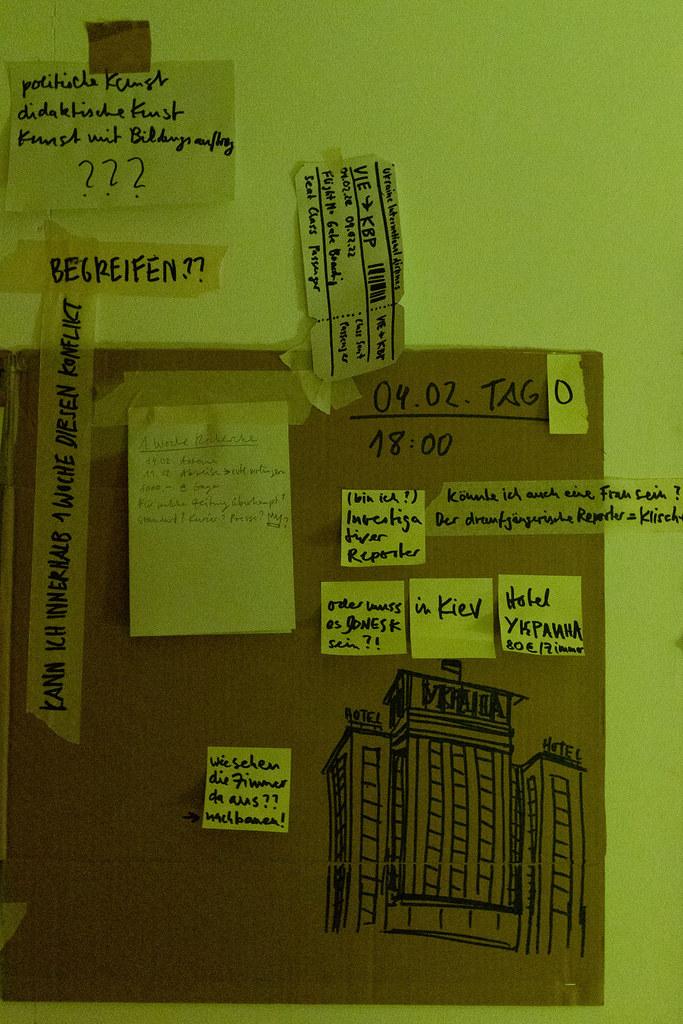 politische Kunst
didaktische Kunst
Kunst mit Bildungsauftrag
???
BEGREIFEN??
KANN ICH INNERHALB 1 WOCHE DIESEN KONFLIKT
Ukraine International Airlines
VIE → KBP
VIE → KBP
04.02.22 09.02.22
Flight No Gate Boarding
Class Seat
Seat Class Passenger
Passenger
04.02. TAG 0
18:00
1 Woche Recherche
(bin ich?)
Investiga
tiver
Reporter
Könnte ich auch eine Frau sein?
Der draufgängerische Reporter = Klisch
oder muss
es DONESK
sein?!
in Kiev
Hotel
УКРАИНА
80€/Zimmer
HOTEL
УКРАІНА
HOTEL
wie sehen
die Zimmer
da aus??
→ nachbauen!